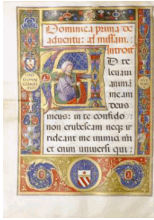 Dominica prima de
adventu: ad missam.
Introit
D te
levavi
animã
meam
deus
meus: in te confido
non erubescam neqꝫ ir
rideant me inimici mei
et enim universi qui